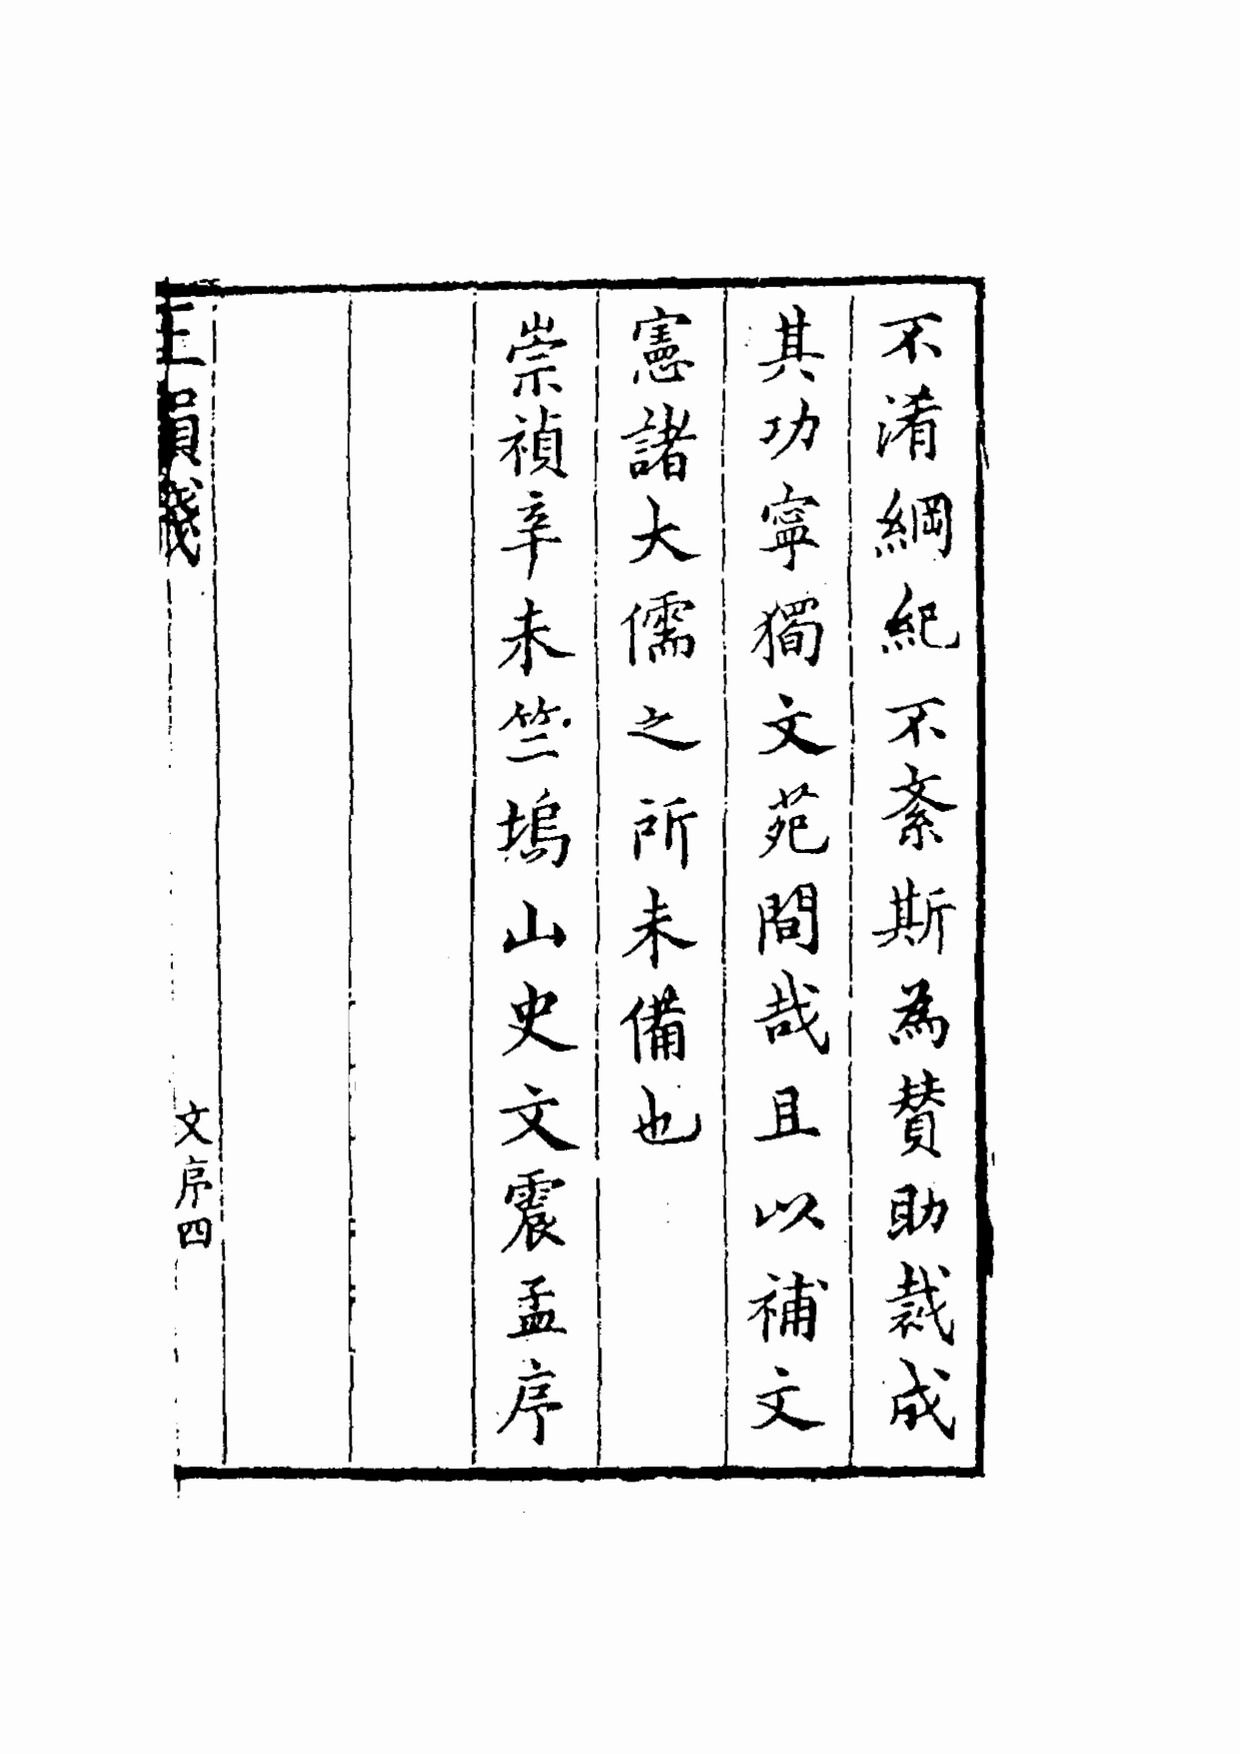 不淆綱紀不紊斯為贊助裁成
其功寧獨文苑間哉且以補文
憲諸大儒之所未備也
崇禎辛未竺塢山史文震孟序
文序四